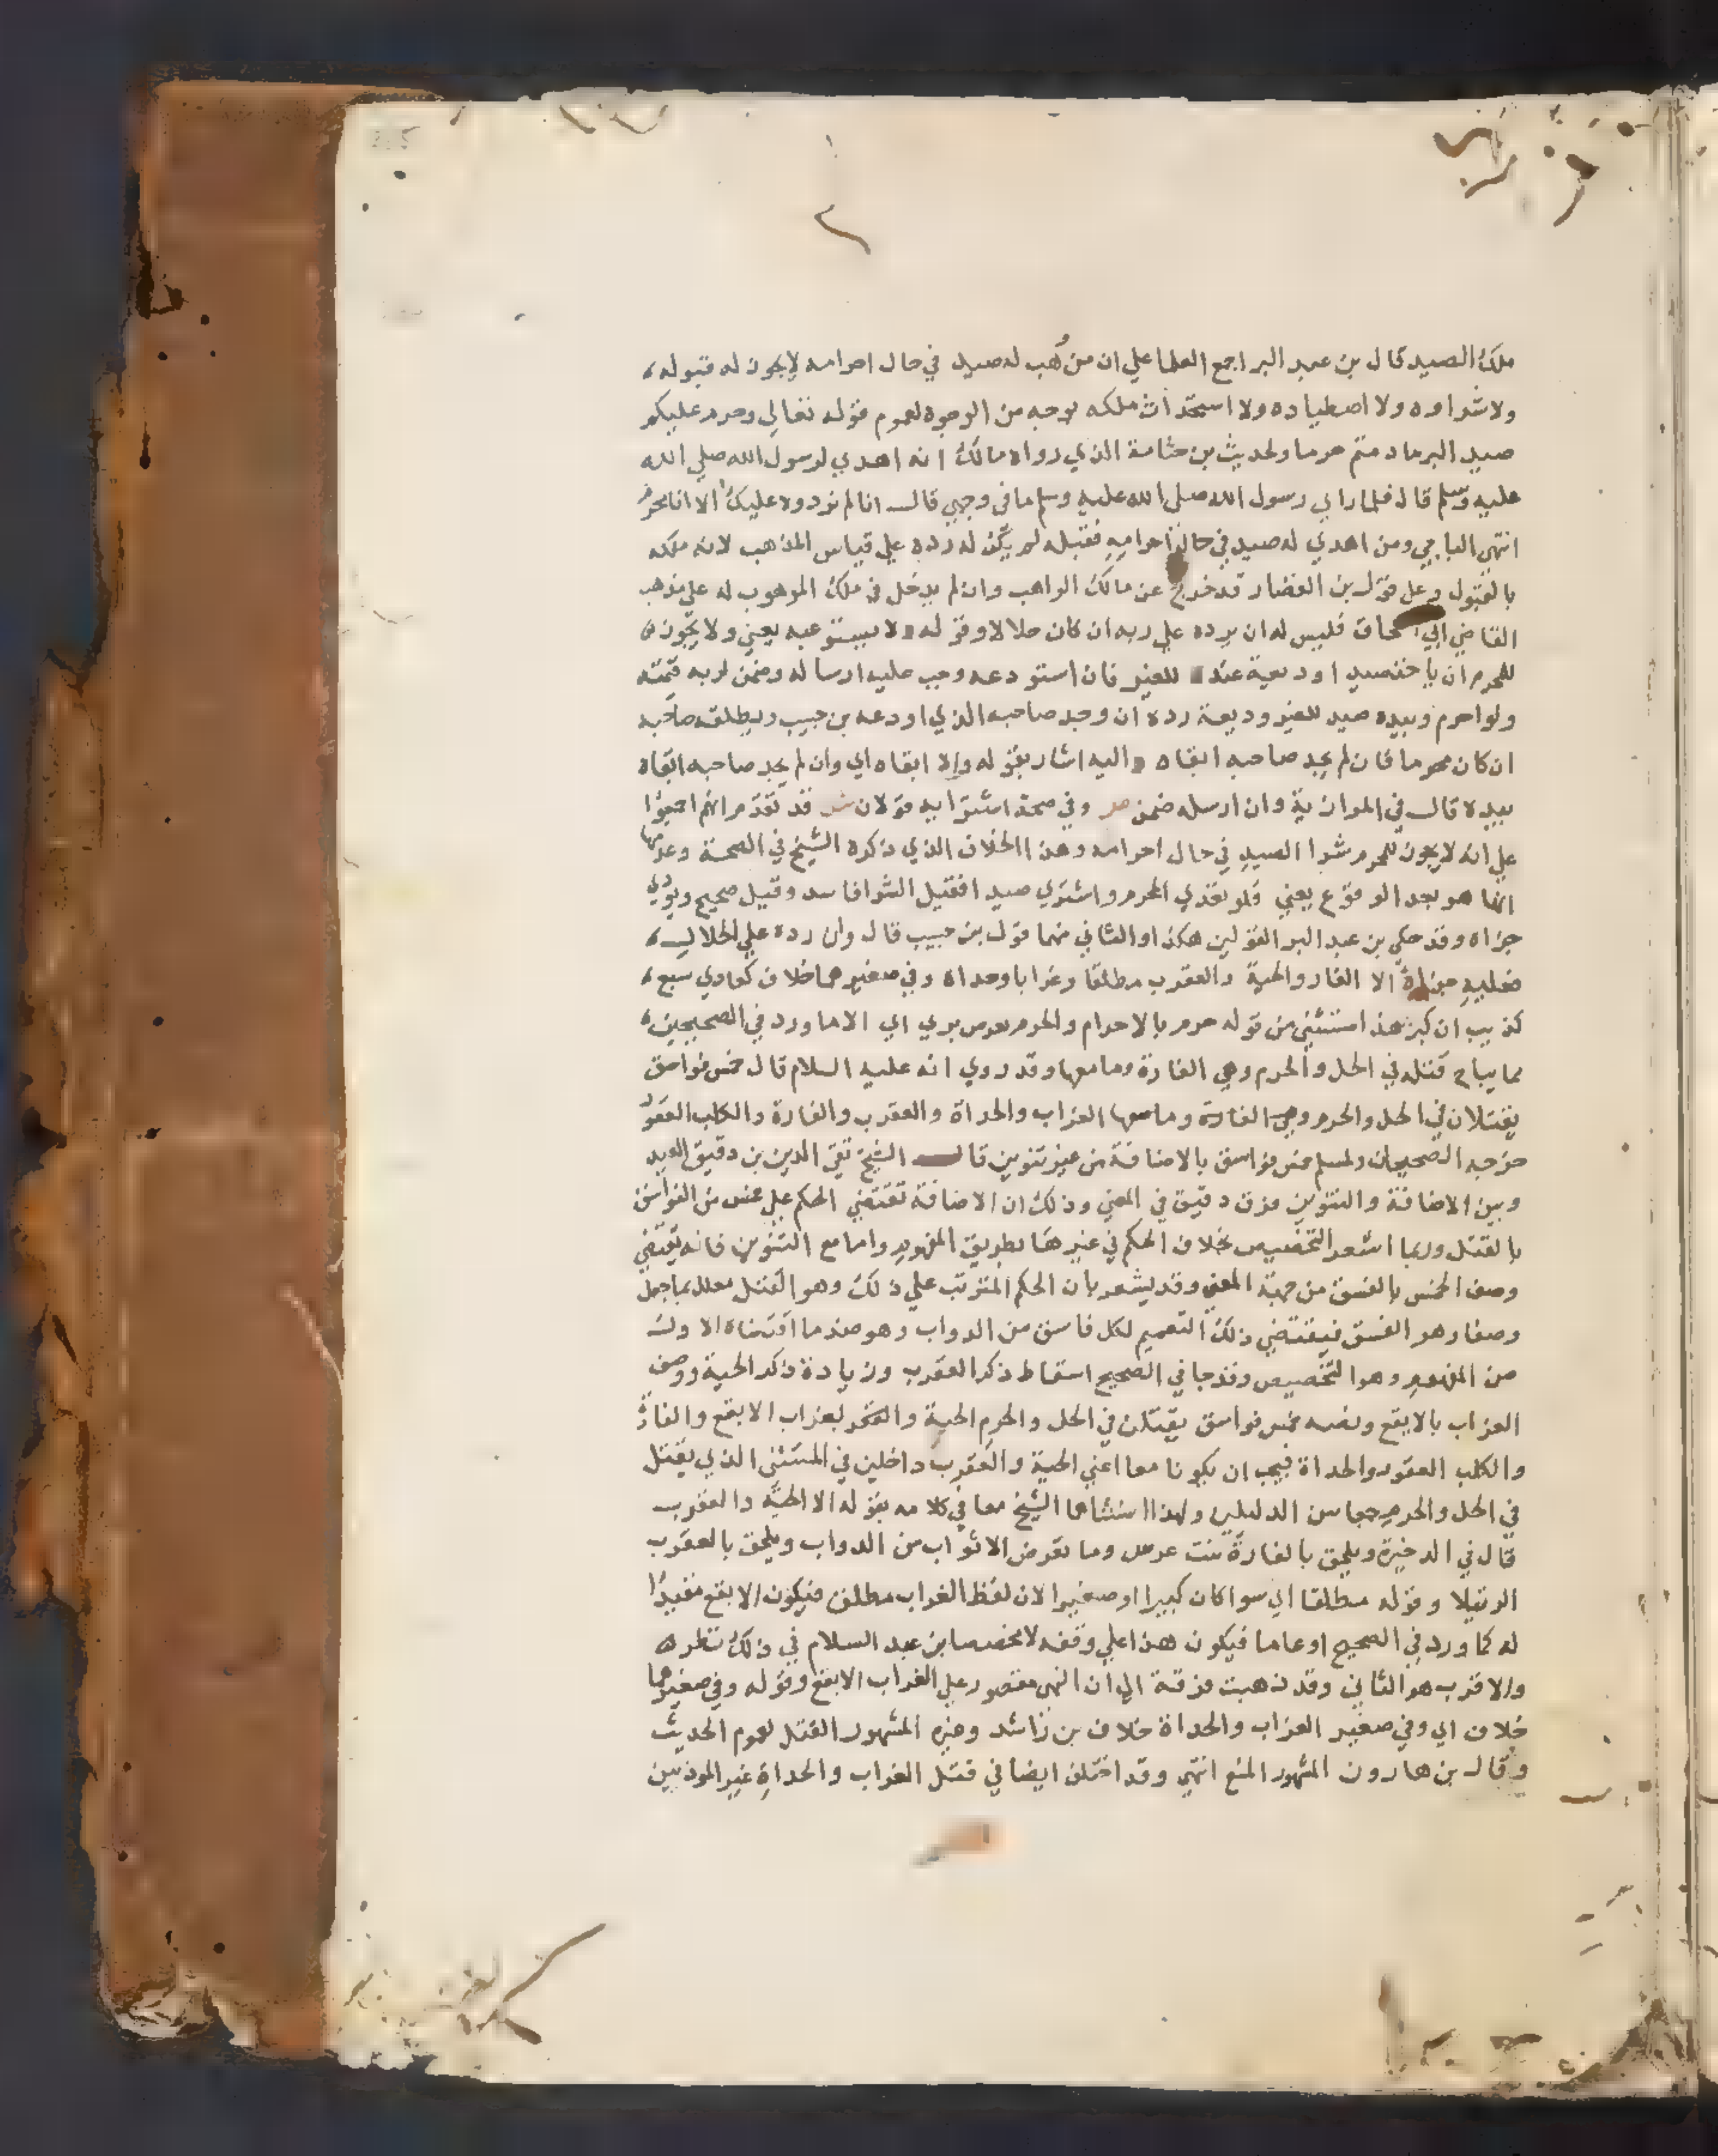 ملك الصيد قال بن عبد البر اجمع العلما علي ان من وُهب له صيد في حال احرامه لا يجوز له قبوله،
ولا شراوه ولا اصطياده ولا استحداث ملكه بوجه من الوجوه لعموم قوله تعالي وحرم عليكم
صيد البر ما دمتم حرما ولحديث بن جثامة الذي رواه مالك انه اهدي لرسول الله صلي الله
عليه وسلم قال فلما راي رسول الله صلي الله عليه وسلم ما في وجهي قال انا لم نرده عليك الا انا محرم
انتهي الباجي ومن اهدي له صيد في حال احرامه فقبله لم يكن له رده علي قياس المذهب لانه ملكه
بالقبول وعلي قول بن القصار قد خرج عن مالك الواهب وان لم يدخل في ملك الموهوب له علي مذهب
القاضي ابي اسحاق فليس له ان يرده علي ربه ان كان حلالا وقوله ولا يستودعه يعني ولا يجوز
للمحرم ان ياخذ صيدا وديعة عنده للغير فان استودعه وجب عليه ارساله وضمن لربه قيمته
ولو احرم وبيده صيد للغير وديعة رده ان وجد صاحبه الذي اودعه بن حبيب ويطلقه صاحبه
ان كان محرما فان لم يجد صاحبه ابقاه واليه اشار بقوله والا ابقاه اي وان لم يجد صاحبه ابقاه
بيده قال في الموازية وان ارسله ضمن ص وفي صحة اشترايه قولان ش قد تقدم انهم اجمعوا
علي انه لا يجوز للمحرم شرا الصيد في حال احرامه وهذا الخلاف الذي ذكره الشيخ في الصحة وعدمها
انما هو بعد الوقوع يعني فلو تعدي المحرم واشتري صيدا فقيل الشرا فاسد وقيل صحيح ويودي
جزاه وقد حكي بن عبد البر القولين هكذا والثاني منهما قول بن حبيب قال وان رده علي الحلال،
فعليه جزاه الا الفار والحية والعقرب مطلقا وغرابا وحداة وفي صغيرهما خلاف كعادي سبع،
كذيب ان كبر هذا مستثني من قوله حرم بالاحرام والحرم تعرض بري اي الا ما ورد في الصحيحين،
مما يباح قتله في الحل والحرم وهي الفارة وما معها وقد روي انه عليه السلام قال خمس فواسق
يقتلان في الحل والحرم وهي الفارة وما معها الغراب والحداة والعقرب والفارة والكلب العقور
خرجه الصحيحان ولمسلم خمس فواسق بالاضافة من غير تنوين قال الشيخ تقي الدين بن دقيق العيد
وبين الاضافة والتنوين فرق دقيق في المعني وذلك ان الاضافة تقتضي الحكم علي خمس من الفواسق
بالقتل وربما اشعر التخصيص بخلاف الحكم في غيرها بطريق المفهوم واما مع التنوين فانه يقتضي
وصف الخمس بالفسق من جهة المعني وقد يشعر بان الحكم المترتب علي ذلك وهو القتل معلل بما جعل
وصفا وهو الفسق فيقتضي ذلك التعميم لكل فاسق من الدواب وهو ضد ما اقتضاه الاول
من المفهوم وهو التخصيص وقد جا في الصحيح اسقاط ذكر العقرب وزيادة ذكر الحية ووصف
الغراب بالابقع ونصه خمس فواسق يقتلن في الحل والحرم الحية والغراب الابقع والفارة
والكلب العقور والحداة فيجب ان يكونا معا اعني الحية والعقرب داخلين في المستثني الذي يقتل
في الحل والحرم جمعا بين الدليلين ولهذا استثناهما الشيخ معا في كلامه بقوله الا الحية والعقرب
قال في الدخيرة ويلحق بالفارة بنت عرس وما يقرض الاثواب من الدواب ويلحق بالعقرب
الرتيلا وقوله مطلقا اي سوا كان كبيرا او صغيرا لان لفظ الغراب مطلق فيكون الابقع مقيدا
له كما ورد في الصحيح او عاما فيكون هذا علي وقفه لا مخصصا بن عبد السلام في ذلك نظر
والاقرب هو الثاني وقد ذهبت فرقة الي ان النهي مقصور علي الغراب الابقع وقوله وفي صغيرهما
خلاف اي وفي صغير الغراب والحداة خلاف بن راشد وغيره المشهور القتل لعموم الحديث
وقال بن هارون المشهور المنع انتهي وقد اختلف ايضا في قتل الغراب والحداة غير الموذيين